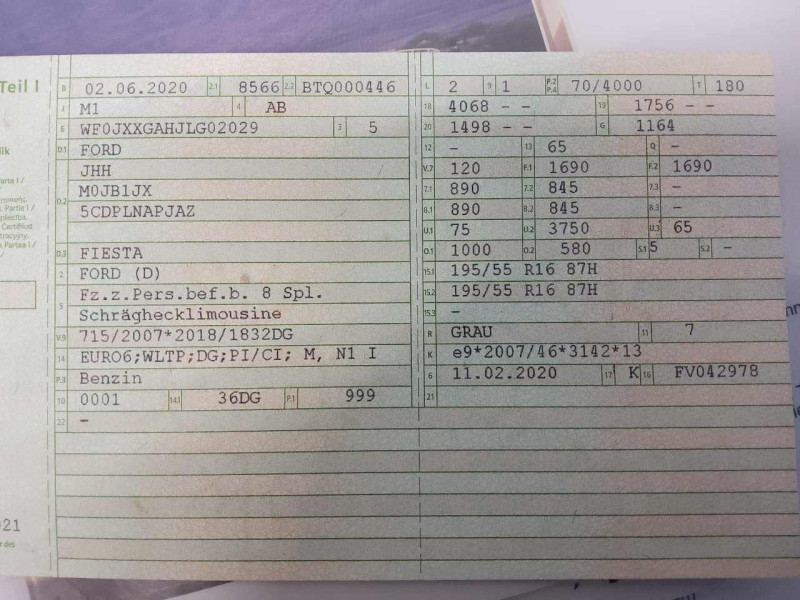 Teil I
B 02.06.2020 2.1 8566 2.2 BTQ000446
J M1 4 AB
E WF0JXXGAHJLG02029 3 5
D.1 FORD
JHH
D.2 M0JB1JX
5CDPLNAPJAZ
D.3 FIESTA
2 FORD (D)
5 Fz.z.Pers.bef.b. 8 Spl.
Schräghecklimousine
V.9 715/2007*2018/1832DG
14 EURO6;WLTP;DG;PI/CI; M, N1 I
P.3 Benzin
10 0001 14.1 36DG P.1 999
22 –
L 2 9 1 P.2 P.4 70/4000 T 180
18 4068 – – 19 1756 – –
20 1498 – – G 1164
12 – 13 65 Q –
V.7 120 F.1 1690 F.2 1690
7.1 890 7.2 845 7.3 –
8.1 890 8.2 845 8.3 –
U.1 75 U.2 3750 U.3 65
O.1 1000 O.2 580 S.1 5 S.2 –
15.1 195/55 R16 87H
15.2 195/55 R16 87H
15.3 –
R GRAU 11 7
K e9*2007/46*3142*13
6 11.02.2020 17 K 16 FV042978
21
021